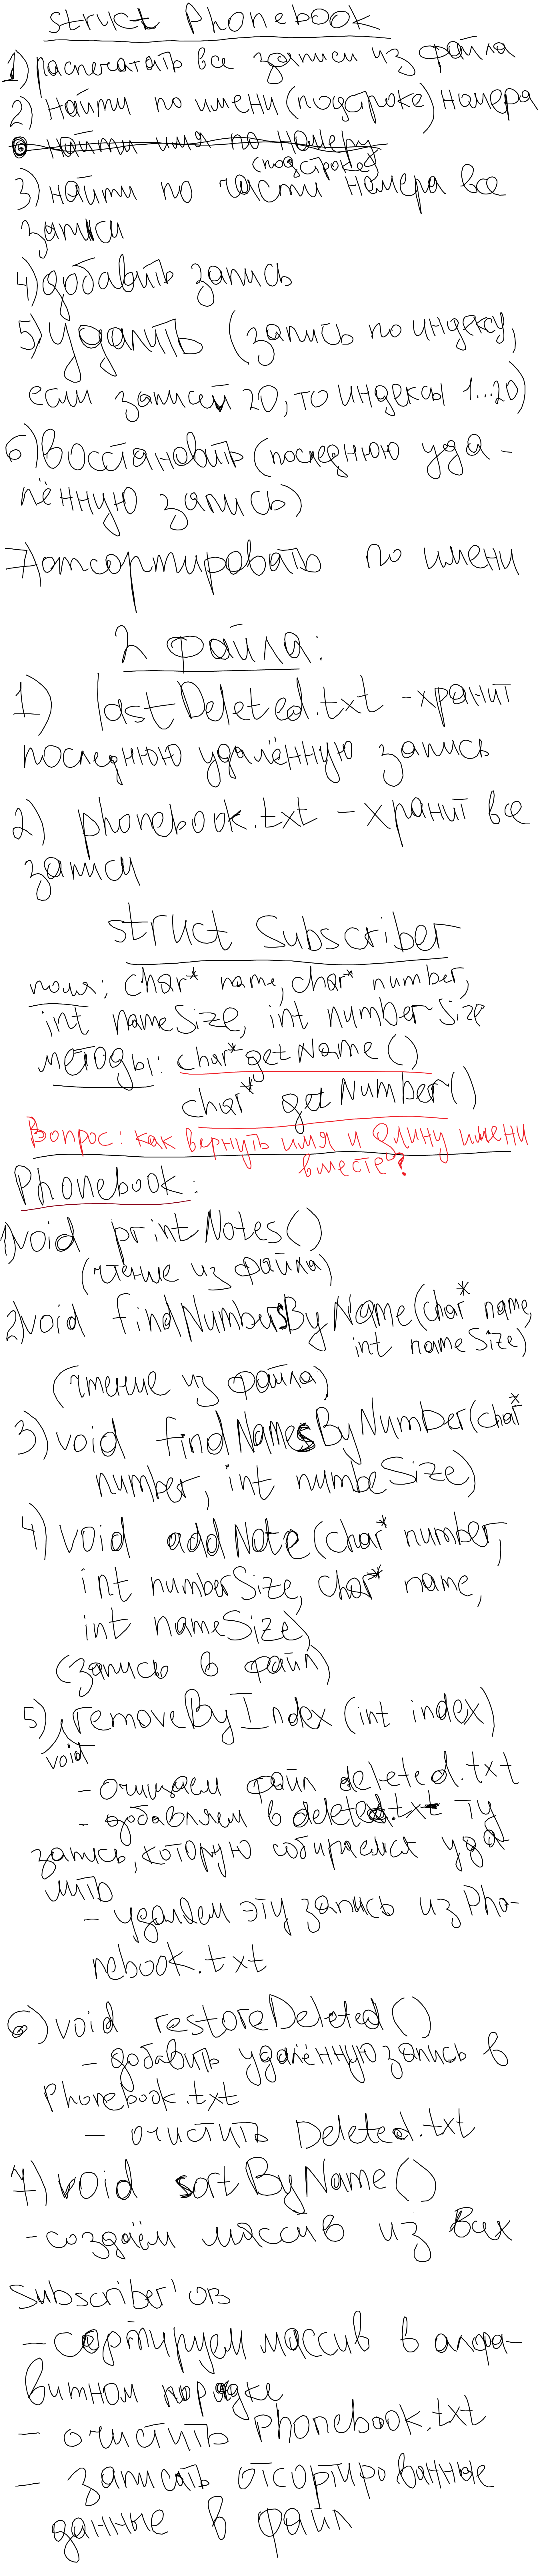 struct Phonebook
1) распечатать все записи из файла
2) найти по имени (подстроке) номера
найти имя по номеру
(подстроке)
3) найти по части номера все
записи
4) добавить запись
5) удалить (запись по индексу,
если записей 20, то индексы 1...20)
6) восстановить (последнюю уда-
лённую запись)
7) отсортировать по имени
2 файла:
1) lastDeleted.txt - хранит
последнюю удалённую запись
2) phonebook.txt - хранит все
записи
struct Subscriber
поля: char* name, char* number,
int nameSize, int numberSize
методы: char* getName()
char* getNumber()
Вопрос: как вернуть имя и длину имени
вместе?
Phonebook:
1) void printNotes()
(чтение из файла)
2) void findNumbersByName(char* name,
int nameSize)
(чтение из файла)
3) void findNamesByNumber(char*
number, int numbeSize)
4) void addNote(char* number,
int numberSize, char* name,
int nameSize)
(запись в файл)
5) removeByIndex(int index)
void
- очищаем файл deleted.txt
- добавляем в deleted.txt ту
запись, которую собираемся уда
лить
- удаляем эту запись из Pho-
nebook.txt
6) void restoreDeleted()
- добавить удалённую запись в
Phonebook.txt
- очистить Deleted.txt
7) void sortByName()
- создаём массив из всех
Subscriber'ов
- сортируем массив в алфа-
витном порядке
- очистить Phonebook.txt
- записать отсортированные
данные в файл